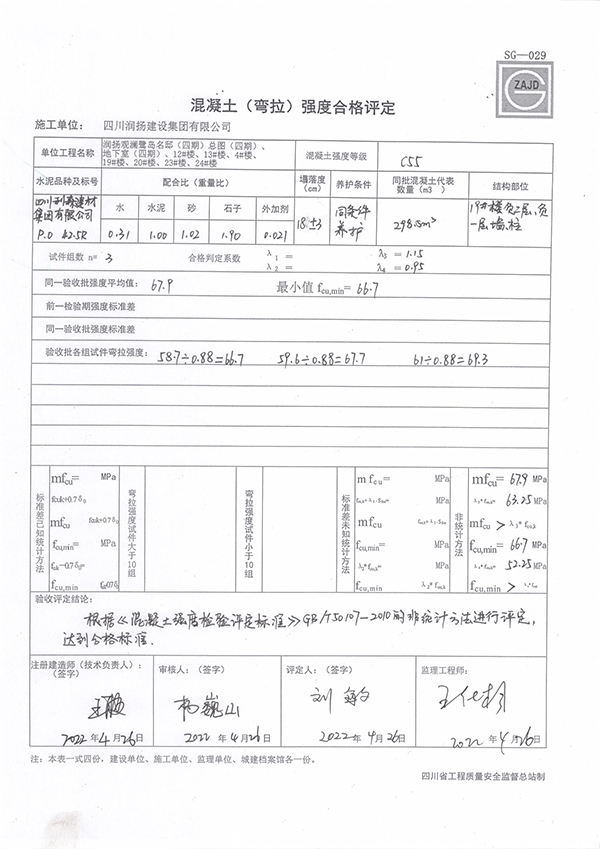 SG—029
ZAJD
混凝土（弯拉）强度合格评定
施工单位： 四川润扬建设集团有限公司
单位工程名称
润扬观澜鹭岛名邸（四期）总图（四期）、
地下室（四期）、12#楼、13#楼、4#楼、
19#楼、20#楼、23#楼、24#楼
混凝土强度等级
C55
水泥品种及标号
配合比（重量比）
塌落度
（cm）
养护条件
同批混凝土代表
数量（m3 ）
结构部位
集团有限公司
P.O 42.5R
水 水泥 砂 石子 外加剂
0.31 1.00 1.02 1.90 0.021
18±3
同条件
养护
298.5m³
19#楼负二层、负
一层墙、柱
试件组数 n= 3
合格判定系数
λ1 =
λ2 =
λ3 = 1.15
λ4 = 0.95
同一验收批强度平均值： 67.9
最小值 fcu,min= 66.7
前一检验期强度标准差
同一验收批强度标准差
验收批各组试件弯拉强度： 58.7÷0.88=66.7 59.6÷0.88=67.7 61÷0.88=69.3
标准差已知统计方法
mfcu= MPa
fcuk+0.7δ0
mfcu fcuk+0.7δ0
fcu,min= MPa
fcuk—0.7δ0=
fcu,min
弯拉强度试件大于10组
弯拉强度试件小于10组
标准差未知统计方法
mfcu= MPa
MPa
mfcu
fcu,min= MPa
λ2*fcu,k= MPa
fcu,min λ2*fcu,k
非统计方法
mfcu= 67.9 MPa
λ3*fcu,k= 63.25 MPa
mfcu > λ3*fcu,k
fcu,min= 66.7 MPa
λ4*fcu,k= 52.25 MPa
fcu,min >
验收评定结论：
根据《混凝土强度检验评定标准》GB/T50107—2010的非统计方法进行评定，
达到合格标准.
注册建造师（技术负责人）：
（签字）
2022年4月26日
审核人：（签字）
杨巍山
2022年4月26日
评定人：（签字）
刘敏
2022年4月26日
监理工程师：
2022年4月26日
注：本表一式四份，建设单位、施工单位、监理单位、城建档案馆各一份。
四川省工程质量安全监督总站制